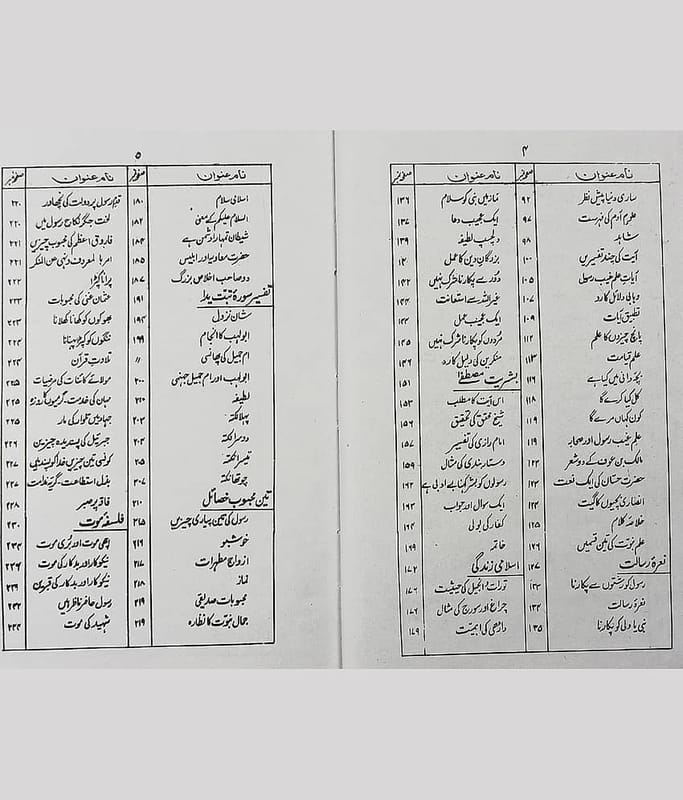 ۴
نام عنوان صفحہ نمبر نام عنوان صفحہ نمبر
ساری دنیا پیش نظر ۹۲
علوم آدم کی فہرست ۹۷
شاہد ۹۸
آیت کی چند تفسیریں ۱۰۰
آیات علم غیب رسول ۱۰۵
وہابی دلائل کا رد ۱۰۷
تطبیق آیات ۱۰۹
پانچ چیزوں کا علم ۱۱۲
علم قیامت ۱۱۳
بچہ دانی میں کیا ہے ۱۱۶
کل کیا کرے گا ۱۱۸
کون کہاں مرے گا ۱۱۹
علم غیب رسول اور صحابہ ۱۱۹
مالک بن عوف کے دو شعر ۱۲۲
حضرت حسان کی ایک نعت ۱۲۳
انصاری بچیوں کا گیت ۱۲۴
خلاصۂ کلام ۱۲۵
علم نبوت کی تین قسمیں ۱۲۶
نعرۂ رسالت ۱۲۷
رسول کو فرشتوں سے پکارنا ۱۳۳
نعرۂ رسالت ۱۳۴
نبی یا ولی کو پکارنا ۱۳۵
نماز میں نبی کو سلام ۱۳۶
ایک عجیب دعا ۱۳۷
دلچسپ لطیفہ ۱۳۹
بزرگان دین کا عمل
دور سے پکارنا شرک نہیں ۱۴۲
غیر اللہ سے استعانت ۱۴۳
ایک عجیب عمل ۱۴۴
مردوں کو پکارنا شرک نہیں ۱۴۵
منکرین کی دلیل کا رد ۱۴۶
بشریت مصطفےٰ ۱۵۱
اس آیت کا مطلب ۱۵۳
شیخ محقق کی تحقیق ۱۵۶
امام رازی کی تفسیر ۱۵۷
دستار بندی کی مثال ۱۵۹
رسولوں کو بشر کہنا بے ادبی ہے ۱۶۲
ایک سوال اور جواب ۱۶۳
کفار کی بولی ۱۶۴
خاتمہ ۱۶۹
اسلامی زندگی ۱۷۲
تورات و انجیل کی حیثیت ۱۷۶
چراغ اور سورج کی مثال ۱۷۶
داڑھی کی اہمیت ۱۷۹
۵
نام عنوان صفحہ نمبر نام عنوان صفحہ نمبر
اسلامی سلام ۱۸۰
السلام علیکم کے معنی ۱۸۲
شیطان تمہارا دشمن ہے ۱۸۴
حضرت معاویہ اور ابلیس ۱۸۶
دو صاحب اخلاص بزرگ ۱۸۷
تفسیر سورۂ تبت یدا ۱۹۱
شان نزول ۱۹۴
ابولہب کا انجام ۱۹۹
ام جمیل کی پھانسی ״
ابولہب اور ام جمیل جہنمی ۲۰۰
لطیفہ
پہلا نکتہ ۲۰۲
دوسرا نکتہ ۲۰۳
تیسرا نکتہ ۲۰۵
چوتھا نکتہ ۲۰۷
تین محبوب خصائل ۲۱۰
رسول کی تین پیاری چیزیں ۲۱۵
خوشبو ۲۱۶
ازواج مطہرات ۲۱۷
نماز ۲۱۸
محبوبات صدیقی ۲۱۹
جمال نبوت کا نظارہ ۲۱۹
قدم رسول پر دولت کی نچھاور ۲۲۰
لخت جگر نکاح رسول میں ۲۲۰
فاروق اعظم کی محبوب چیزیں ۲۲۱
امر بالمعروف و نہی عن المنکر ۲۲۱
پرانا کپڑا ۲۲۲
عثمان غنی کی محبوبات ۲۲۳
بھوکوں کو کھانا کھلانا ۲۲۳
ننگوں کو کپڑا پہنانا ۲۲۴
تلاوت قرآن ۲۲۴
مولائے کائنات کی مرضیات ۲۲۵
مہمان کی خدمت، گرمیوں کا روزہ ۲۲۵
جہاد میں تلوار کی مار ۲۲۵
جبرئیل کی پسندیدہ چیزیں ۲۲۶
کونسی تین چیزیں خدا کو پسند ہیں ۲۲۷
بذل استطاعت، گریۂ ندامت ۲۲۷
فاقہ پر صبر ۲۲۸
فلسفۂ موت ۲۳۰
اچھی موت اور بری موت ۲۳۴
نیکوکار اور بدکار کی موت ۲۳۶
نیکوکار اور بدکار کی قبریں ۲۳۹
رسول حاضر ناظر ہیں ۲۴۲
شہید کی موت ۲۴۴